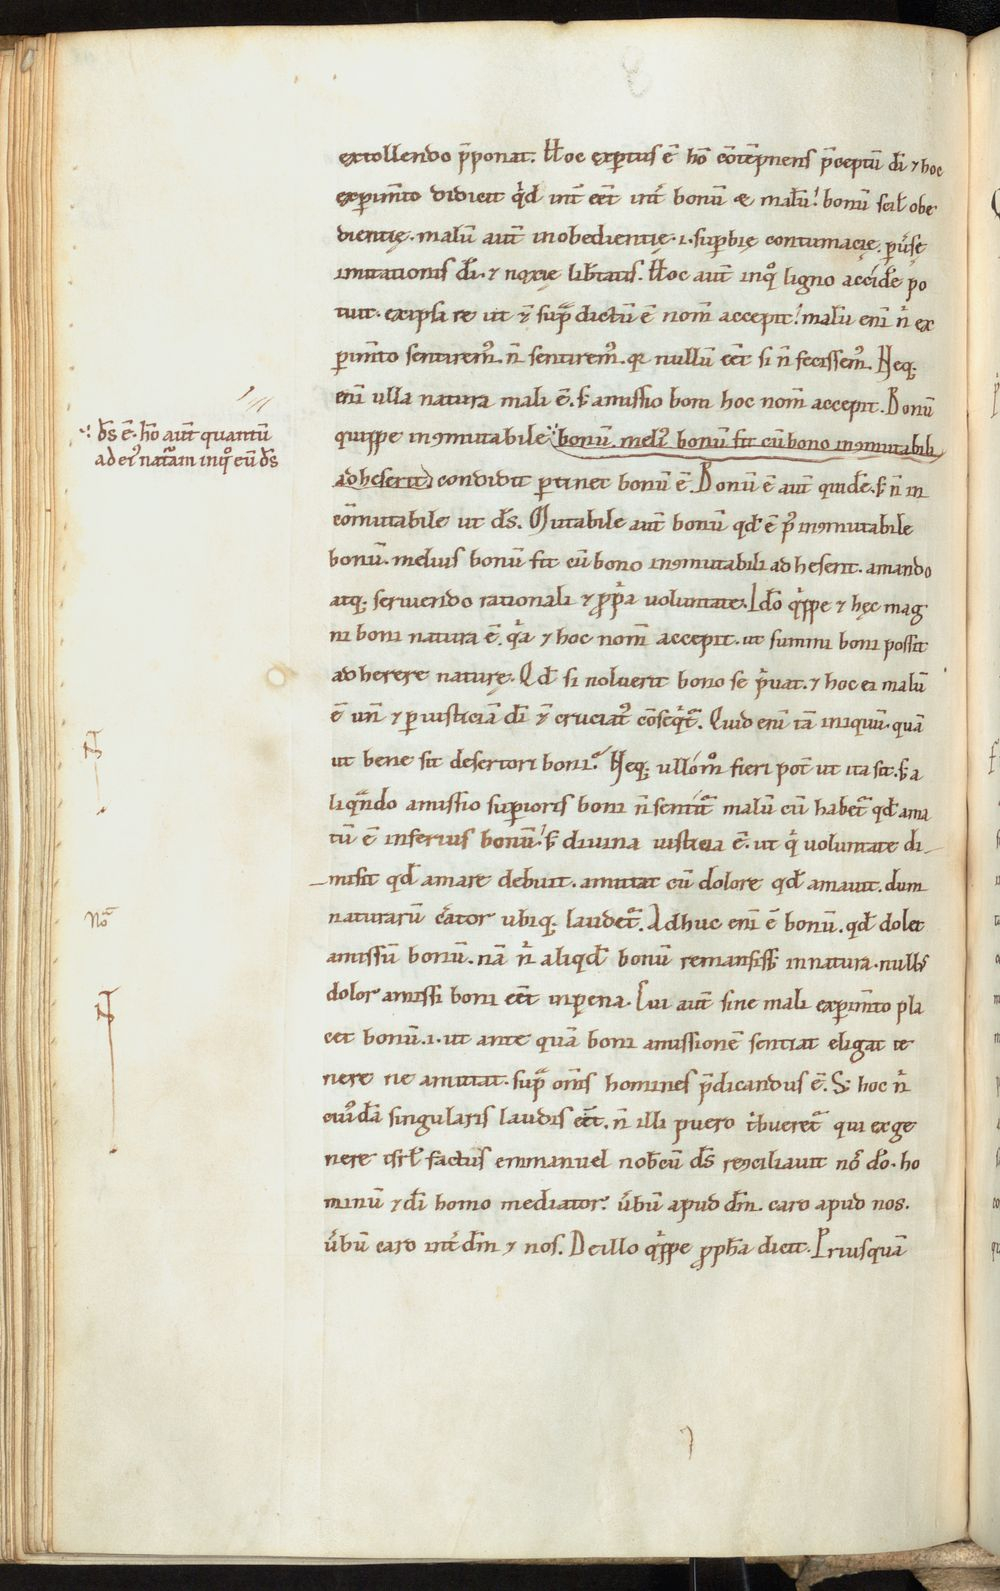 extollendo p̄ponat. Hoc exꝑtus ē hō cōtēpnens p̄ceptū dī ⁊ hoc
exꝑim̄to didicit qͥd int̄ eēt int̄ bonū & malū. bonū scił obe
dientię. malū aut̄ inobedientię .i. supbię contumacię. ꝑuͥsę
imitationis dī. ⁊ noxię lib̄tatis. Hoc aut̄ inqͦ ligno accidē po
tuit. ex ipsa re ut ÷ supᵃ dictū ē nom̄ accepit. malū eni n̄ ex
ꝑim̄to sentirem᷒. n̄ sentirem᷒. qr nullū eēt si n̄ fecissem᷒. Neq;
eni ulla natura mali ē. ſ; amissio boni hoc nom̄ accepit. Bonū
quippe in9mutabile bonū. meli᷒ bonū fit cū bono in9mutabili
adheserit condidit ꝑtinet bonū ē. Bonū ē aut̄ quidē. ſ; n̄ in
cōmutabile ut dꝭ. Mutabile aut̄ bonū qđ ē p᷒ in9mutabile
bonū. melius bonū fit cū bono in9mutabili adheserit. amando
atq; seruiendo rationali ⁊ ꝓpͥa uoluntate. Idō qͥppe ⁊ hęc mag
ni boni natura ē. qͥa ⁊ hoc nom̄ accepit. ut summi boni possit
adherere naturę. Qđ si noluerit bono se pͥuat. ⁊ hoc ei malū
ē un̄ ⁊ ꝑ iusticiā dī ÷ cruciat᷒ cōseqͥt᷑. Quid eni tā iniquū. quā
ut bene sit desertori boni? Neq; ullom̊ fieri pot̄ ut ita sit. ſ; a
liqᵃndo amissio supioris boni n̄ sentit᷑ malū cū habet᷑ qđ ama
tū ē inferius bonū. ſ; diuina iusticia ē. ut qͥ uoluntate di
misit qđ amare debuit. amittat cū dolore qđ amauit. dum
naturarū c̄ator ubiq; laudet᷑. Adhuc eni ē bonū. qđ dolet
amissū bonū. nā nͥ aliqđ bonū remansiss; in natura. null᷒
dolor amissi boni eēt in pena. Cui aut̄ sine mali exꝑim̄to pla
cet bonū .i. ut ante quā boni amissionē sentiat eligat te
nere ne amittat. supᵃ om̄s homines p̄dicandus ē. S; hoc nͥ
cuiᷤdā singularis laudis eēt. n̄ illi puero tͥbueret᷑ qui ex ge
nere isrł factus emmanuel nobcū dꝭ re9ciliauit nō dō. ho
minū ⁊ dī homo mediator. ūbū apud dm̄. caro apud nos.
ūbū caro int̄ dm̄ ⁊ nos. De illo qͥppe ꝓpħa dicit. Priusquā
dꝭ ē. hō aut̄ quantū
ad ei᷒ natᵃam inqͦ eū dꝭ
Noᵃ